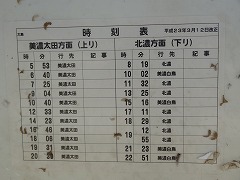 時刻表 平成23年3月12日改正
美濃太田方面(上り) 北濃方面(下り)
時 分 行先 記事 時 分 行先 記事
5 53 美濃太田 8 19 北濃
6 40 美濃太田 10 02 美濃白鳥
7 25 美濃太田 11 32 北濃
9 04 美濃太田 13 25 北濃
10 40 美濃太田 15 16 美濃白鳥
12 美濃太田 17 11 北濃
14 美濃太田 18 29 北濃
16 46 美濃太田 19 12 北濃
18 美濃太田 55 北濃
19 31 美濃太田 21 23 美濃白鳥
20 美濃太田 22 51 美濃白鳥